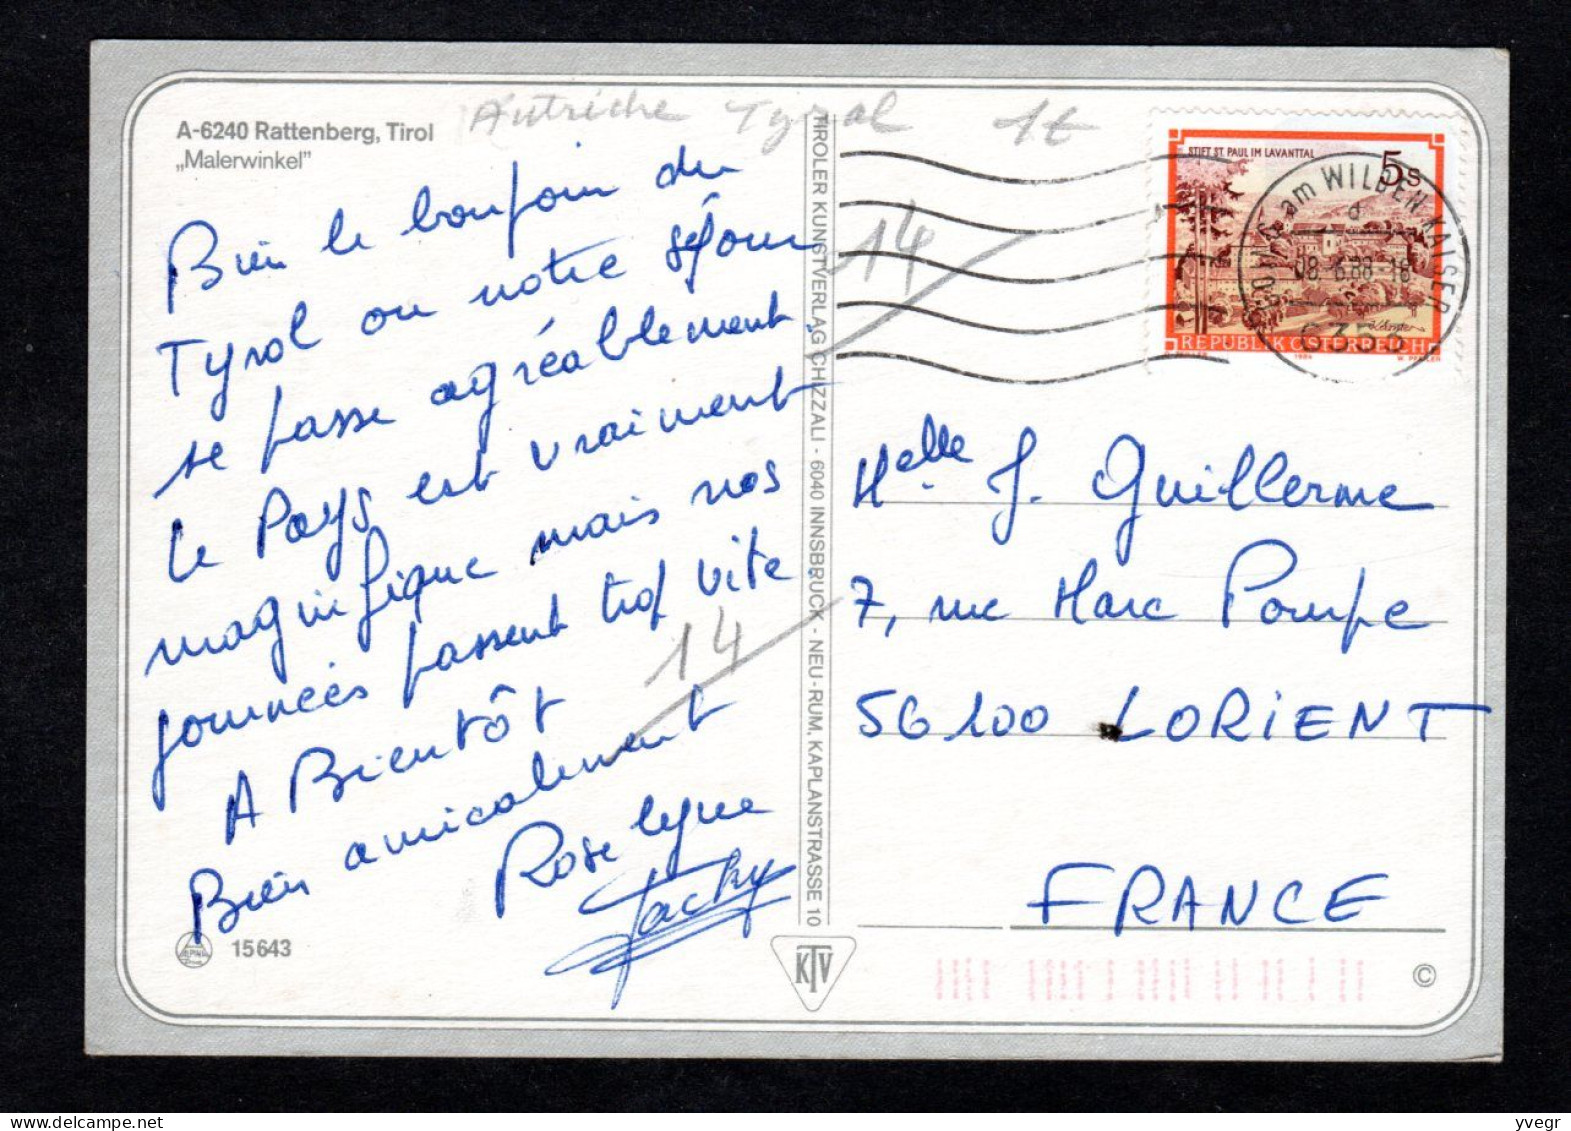 A-6240 Rattenberg, Tirol
„Malerwinkel"
Autriche Tyrol 1€
Bien le bonjour du
Tyrol ou notre séjour
se passe agréablement.
Le Pays est vraiment
magnifique mais nos
journées passent trop vite.
A Bientôt
Bien amicalement
Roselyne
Jacky
14
14
15643
TIROLER KUNSTVERLAG CHIZZALI - 6040 INNSBRUCK - NEU-RUM, KAPLANSTRASSE 10
KTV
STIFT ST. PAUL IM LAVANTTAL
5 S
REPUBLIK ÖSTERREICH
1984
am WILDEN KAISER
6353
Melle J. Guillerme
7, rue Marc Pompe
56100 LORIENT
FRANCE
©
yvegr